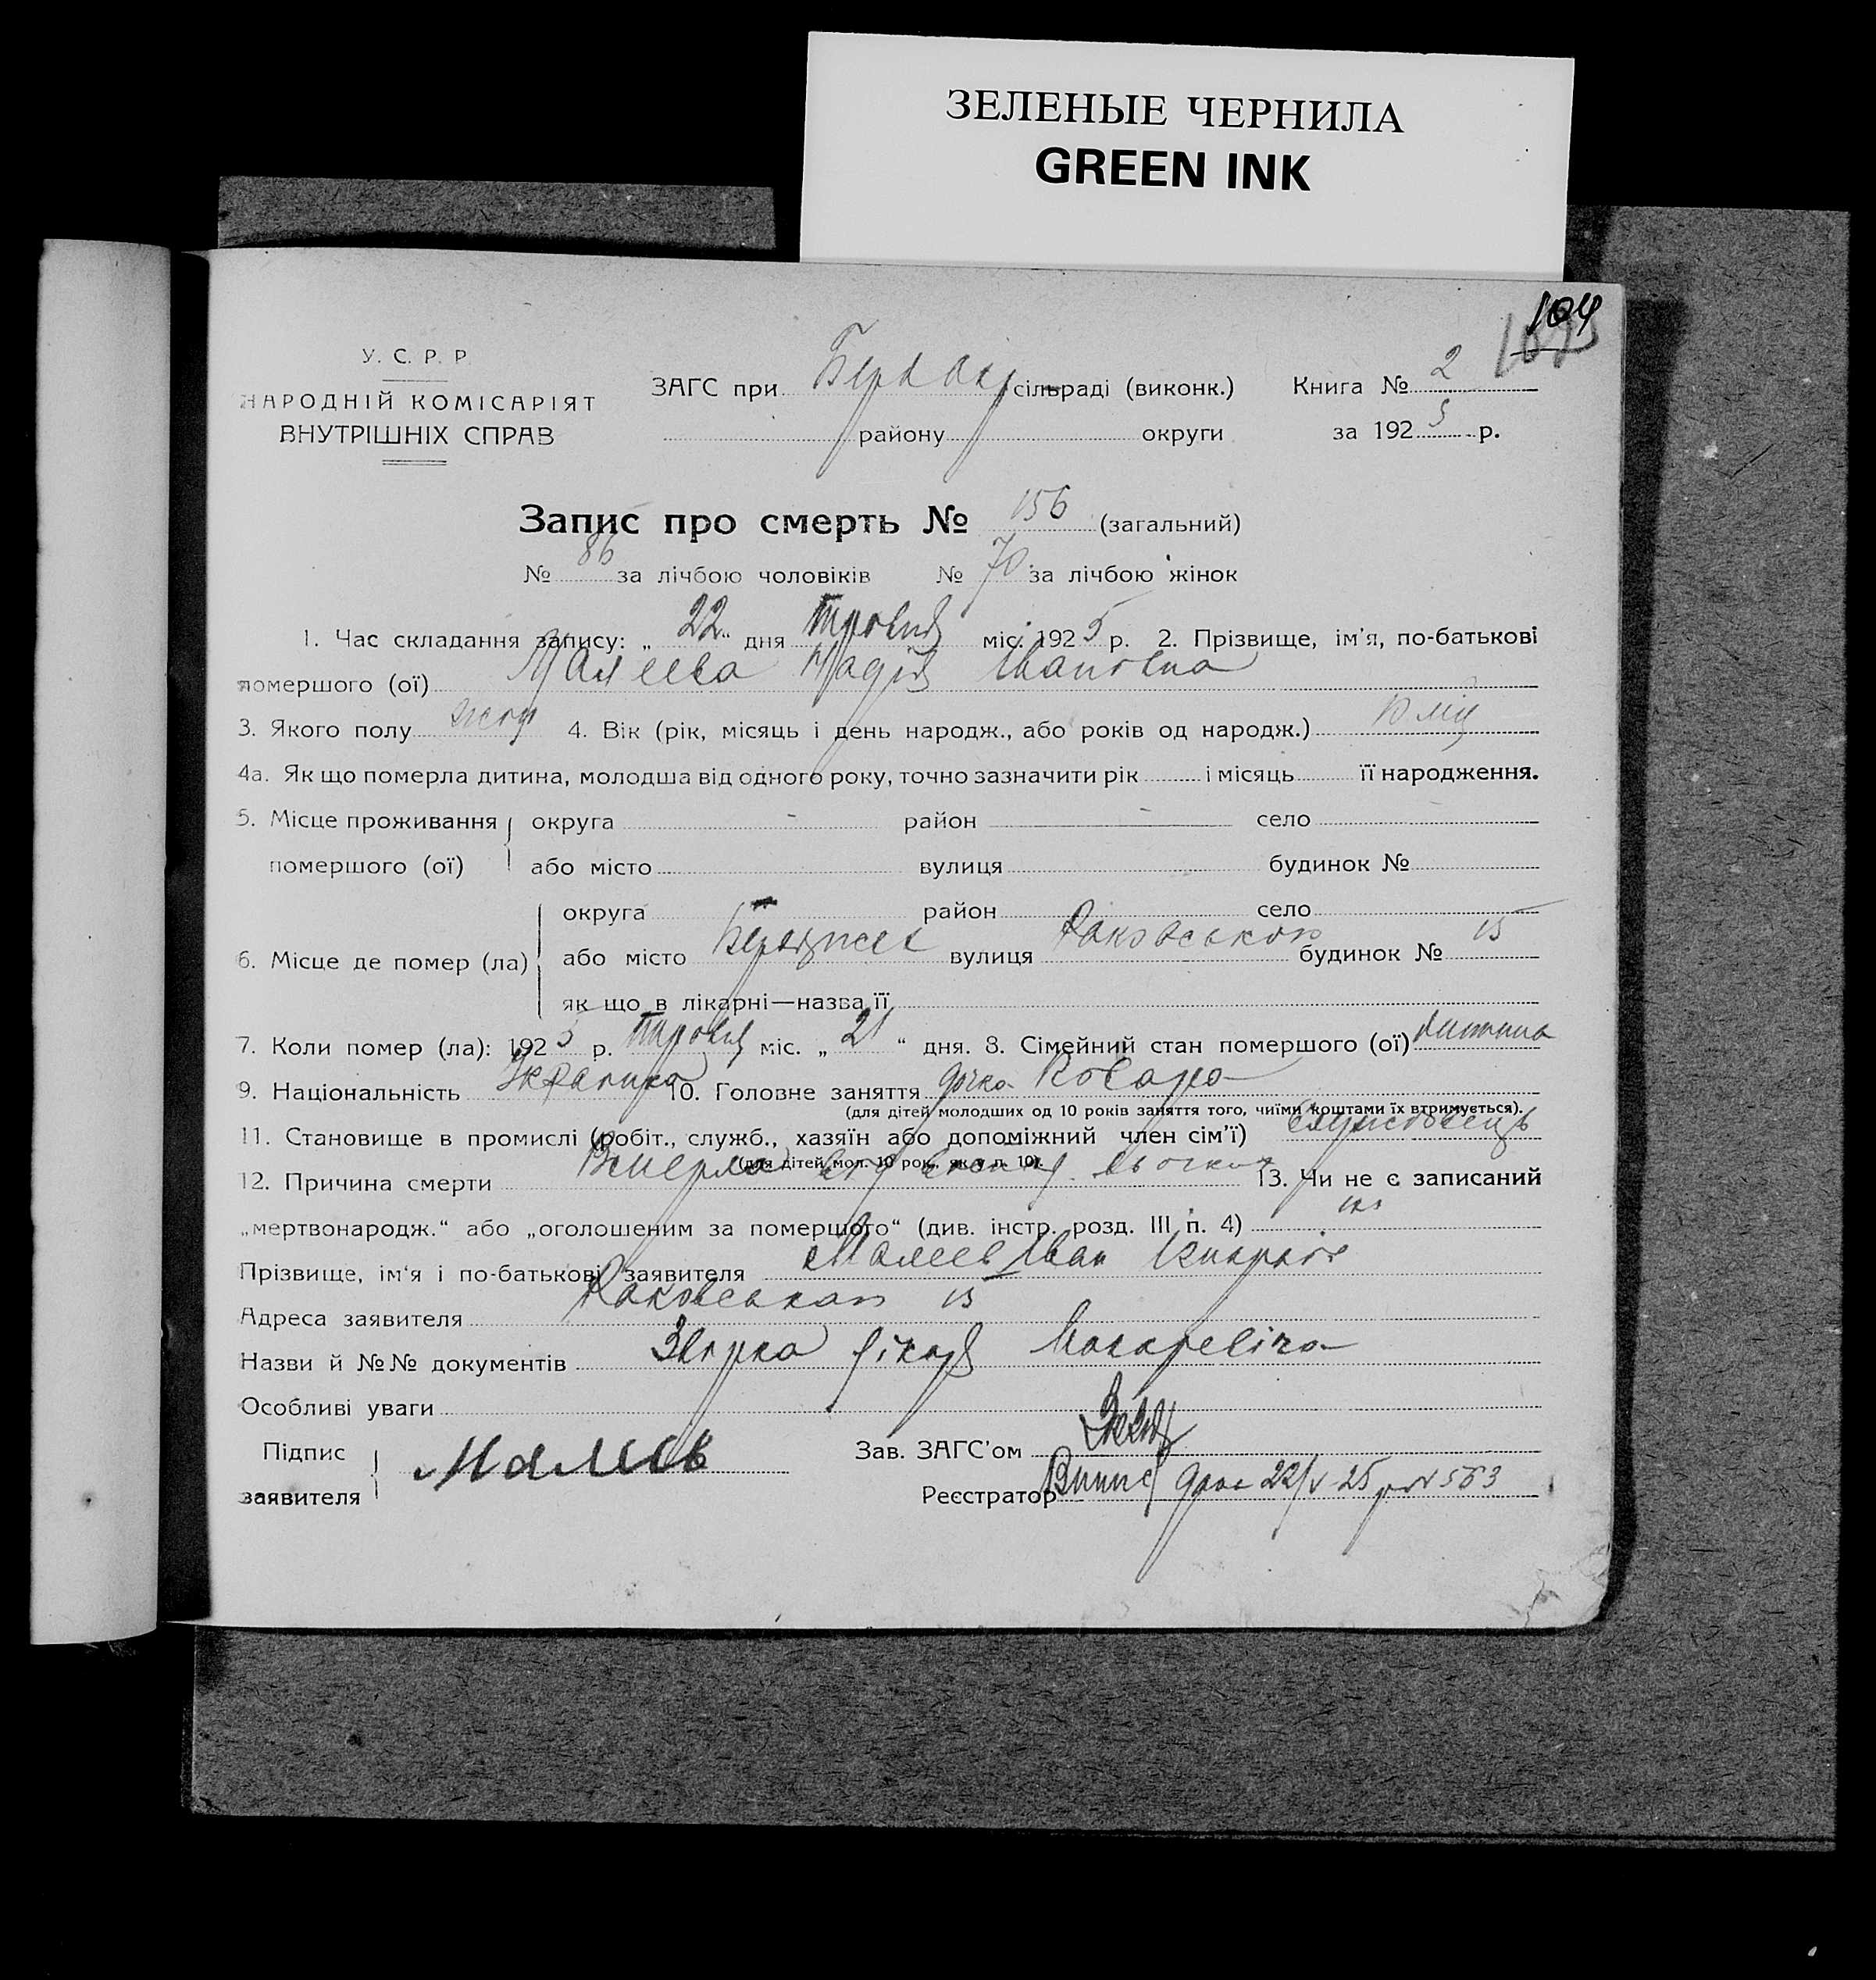 ЗЕЛЕНЫЕ ЧЕРНИЛА
GREEN INK
104
У. С. Р. Р.
НАРОДНІЙ КОМІСАРІЯТ
ВНУТРІШНІХ СПРАВ
ЗАГС при сільраді (виконк.)
району округи
Книга № 2
за 1925 р.
Запис про смерть № 156 (загальний)
№ 86 за лічбою чоловіків № 70 за лічбою жінок
1. Час складання запису: „ 22 “ дня Травня міс. 1925 р. 2. Прізвище, ім'я, по-батькові
помершого (ої) Малеева Надія Івановна
3. Якого полу жін 4. Вік (рік, місяць і день народж., або років од народж.)
4а. Як що померла дитина, молодша від одного року, точно зазначити рік і місяць її народження.
5. Місце проживання помершого (ої)
округа район село
або місто вулиця будинок №
6. Місце де помер (ла)
округа район село
або місто Бердичев вулиця Раковського будинок № 15
як що в лікарні—назва її
7. Коли помер (ла): 1925 р. Травня міс. „ 21 “ дня. 8. Сімейний стан помершого (ої) дитина
9. Національність Украінка 10. Головне заняття дочка
(для дітей молодших од 10 років заняття того, чиїми коштами їх втримується).
11. Становище в промислі (робіт., служб., хазяїн або допоміжний член сім'ї)
(для дітей мол. 10 рок., як у п. 10).
12. Причина смерти Вмерла від 13. Чи не є записаний
„мертвонародж.“ або „оголошеним за помершого“ (див. інстр. розд. III п. 4)
Прізвище, ім'я і по-батькові заявителя Малеев Іван
Адреса заявителя 15
Назви й №№ документів лікаря Макаревіча
Особливі уваги
Підпис заявителя Малеев
Зав. ЗАГС'ом
Реєстратор 22/V-25 р № 563